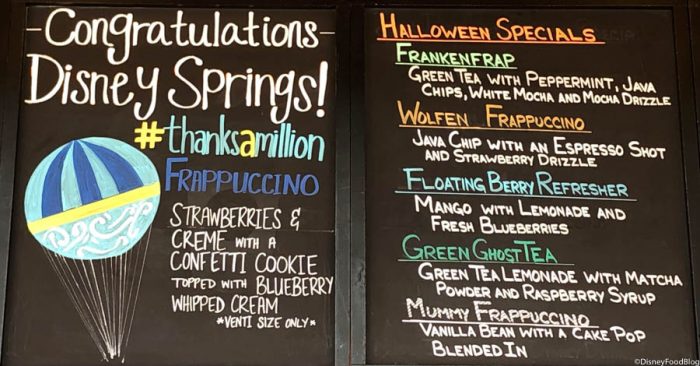 -Congratulations-
Disney Springs!
#thanksamillion
FRAPPUCCINO
STRAWBERRIES &
CREME WITH A
CONFETTI COOKIE
TOPPED WITH BLUEBERRY
WHIPPED CREAM
*VENTI SIZE ONLY*
HALLOWEEN SPECIALS
FRANKENFRAP
GREEN TEA WITH PEPPERMINT, JAVA
CHIPS, WHITE MOCHA AND MOCHA DRIZZLE
WOLFEN FRAPPUCCINO
JAVA CHIP WITH AN ESPRESSO SHOT
AND STRAWBERRY DRIZZLE
FLOATING BERRY REFRESHER
MANGO WITH LEMONADE AND
FRESH BLUEBERRIES
GREEN GHOST TEA
GREEN TEA LEMONADE WITH MATCHA
POWDER AND RASPBERRY SYRUP
MUMMY FRAPPUCCINO
VANILLA BEAN WITH A CAKE POP
BLENDED IN
©DisneyFoodBlog